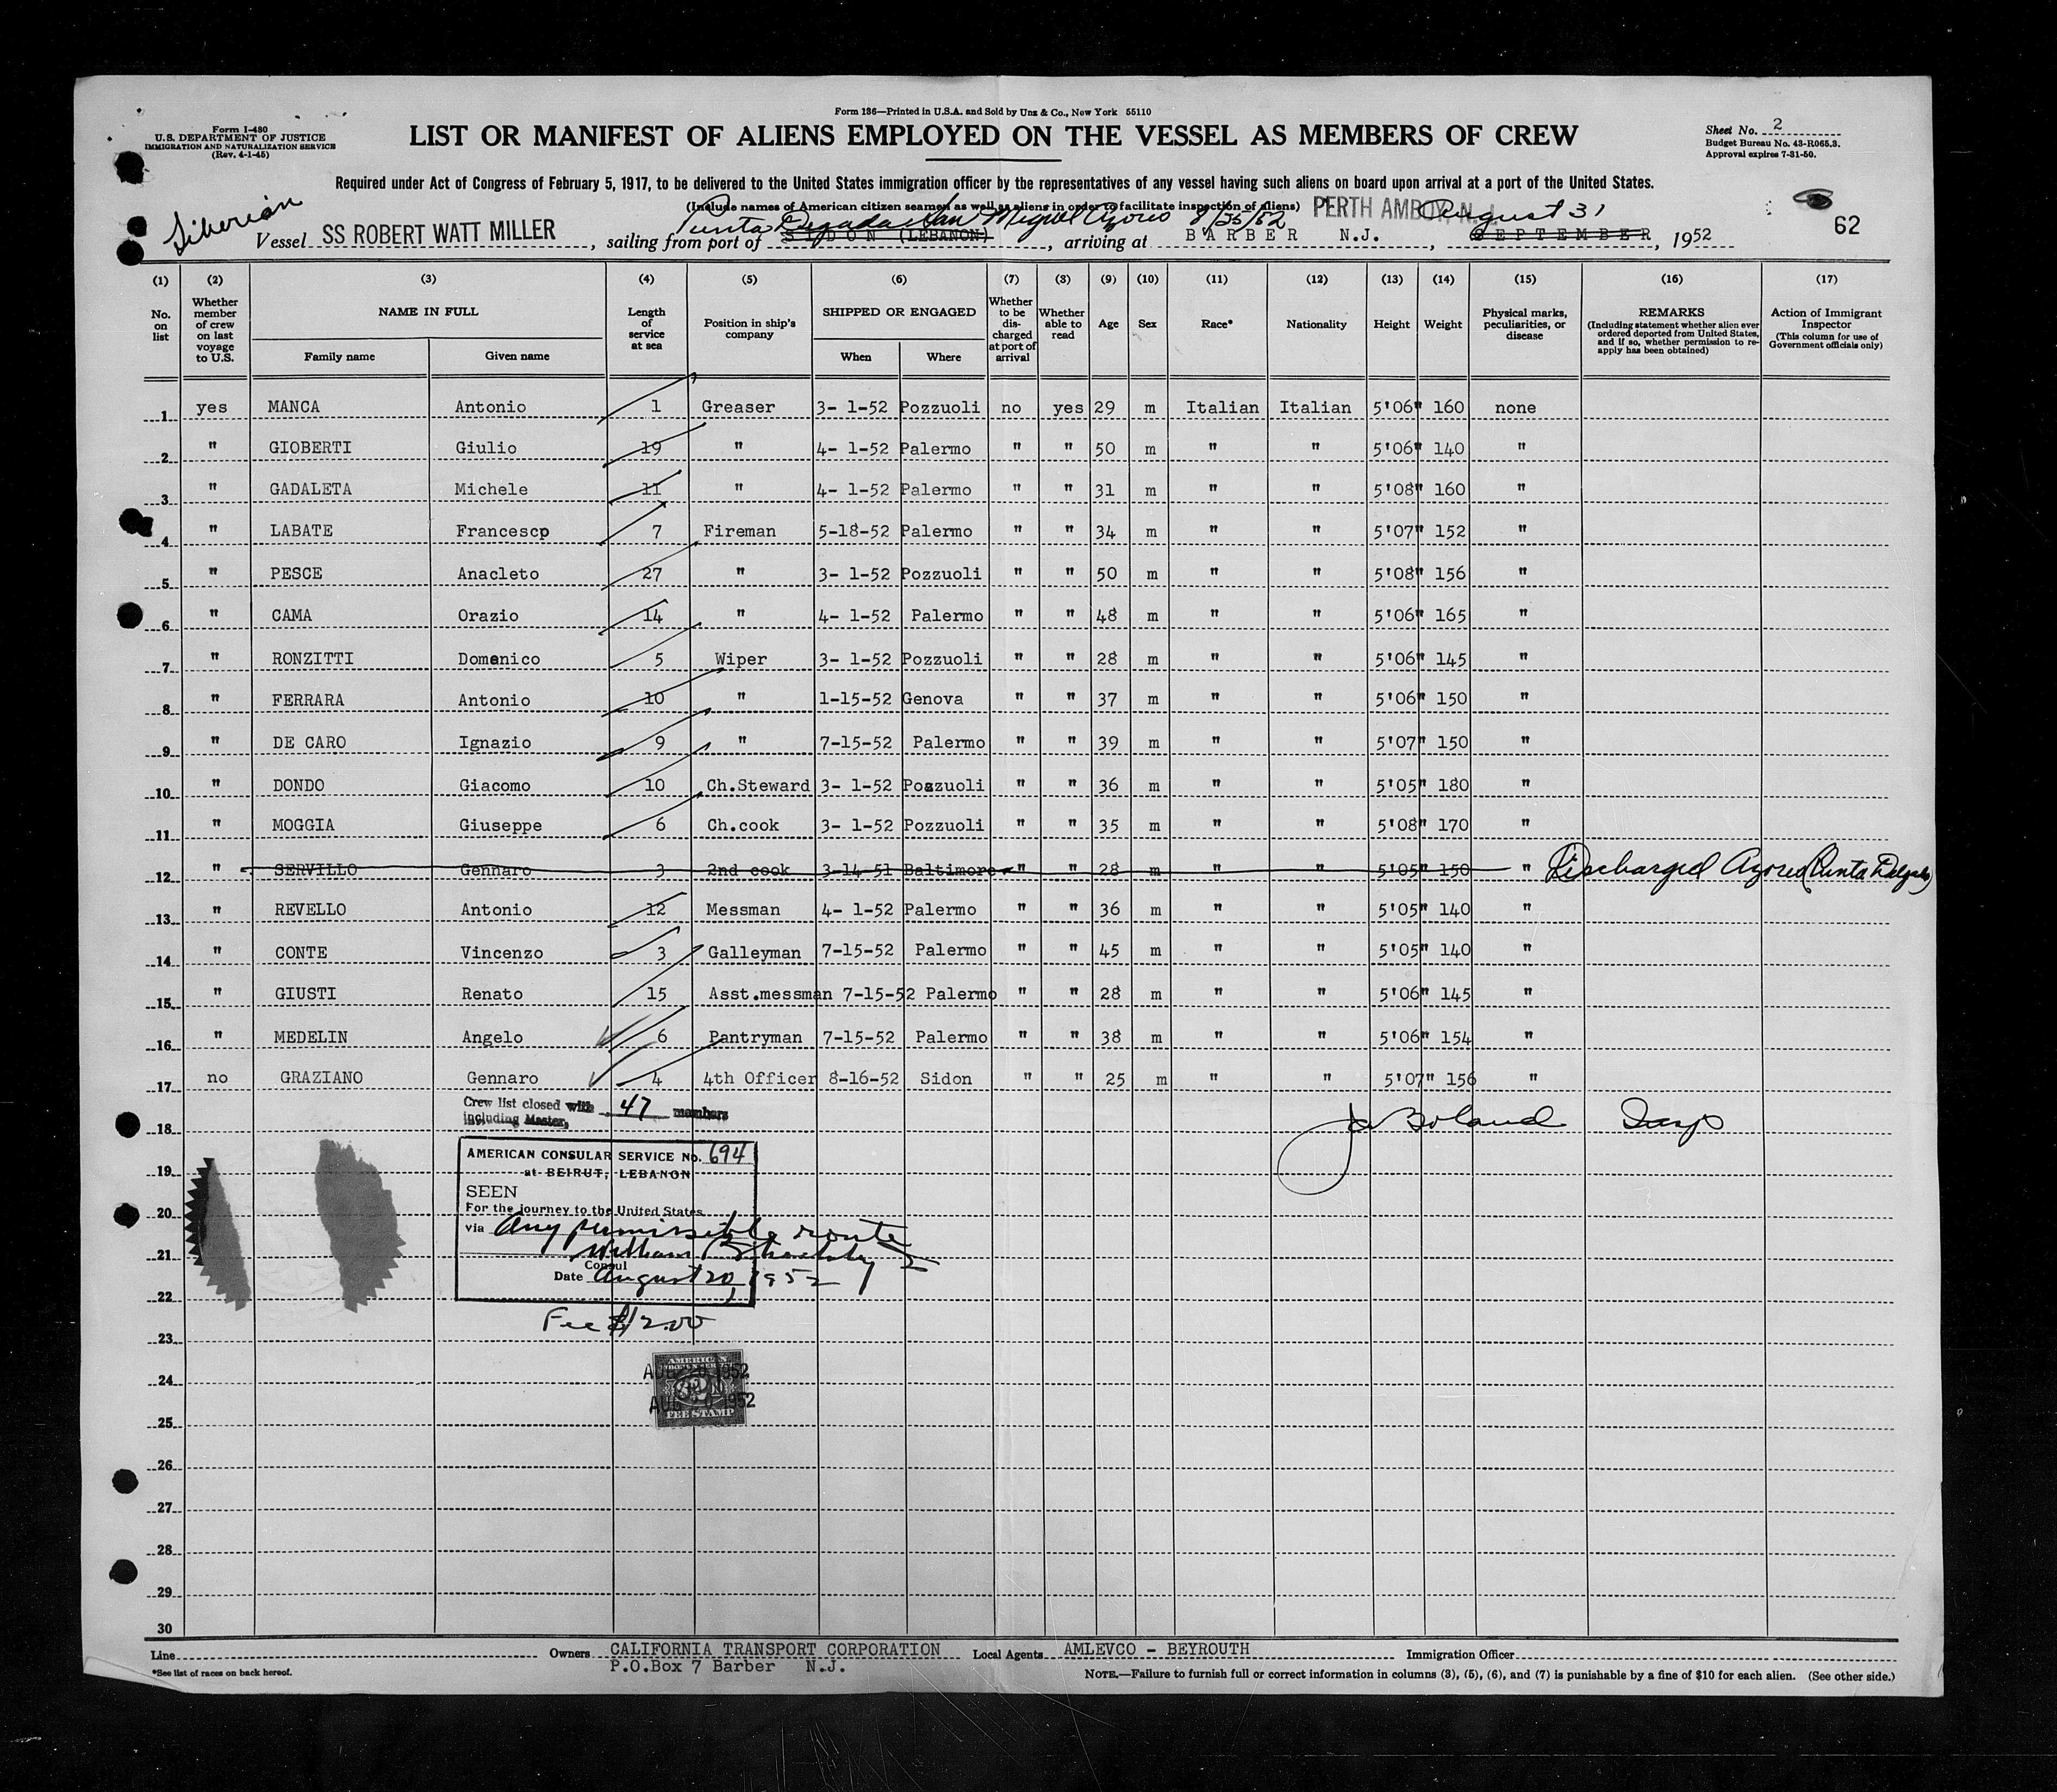 Form 136—Printed in U.S.A. and Sold by Unz & Co., New York 55110
Form I-480
U.S. DEPARTMENT OF JUSTICE
IMMIGRATION AND NATURALIZATION SERVICE
(Rev. 4-1-45)
LIST OR MANIFEST OF ALIENS EMPLOYED ON THE VESSEL AS MEMBERS OF CREW
Sheet No. 2
Budget Bureau No. 43-R065.3.
Approval expires 7-31-50.
Required under Act of Congress of February 5, 1917, to be delivered to the United States immigration officer by the representatives of any vessel having such aliens on board upon arrival at a port of the United States.
(Include names of American citizen seamen as well as aliens in order to facilitate inspection of aliens)
Liberian
Punta Degada San Miguel Azores 8/25/52 PERTH AMBOY, N.J. August 31
62
Vessel SS ROBERT WATT MILLER, sailing from port of SIDON (LEBANON), arriving at BARBER N.J., SEPTEMBER, 1952
(1) (2) (3) (4) (5) (6) (7) (8) (9) (10) (11) (12) (13) (14) (15) (16) (17)
No. on list
Whether member of crew on last voyage to U.S.
NAME IN FULL
Family name Given name
Length of service at sea
Position in ship's company
SHIPPED OR ENGAGED
When Where
Whether to be discharged at port of arrival
Whether able to read
Age
Sex
Race*
Nationality
Height
Weight
Physical marks, peculiarities, or disease
REMARKS
(Including statement whether alien ever ordered deported from United States, and if so, whether permission to reapply has been obtained)
Action of Immigrant Inspector
(This column for use of Government officials only)
1 yes MANCA Antonio 1 Greaser 3- 1-52 Pozzuoli no yes 29 m Italian Italian 5'06" 160 none
2 " GIOBERTI Giulio 19 " 4- 1-52 Palermo " " 50 m " " 5'06" 140 "
3 " GADALETA Michele 11 " 4- 1-52 Palermo " " 31 m " " 5'08" 160 "
4 " LABATE Francesco 7 Fireman 5-18-52 Palermo " " 34 m " " 5'07" 152 "
5 " PESCE Anacleto 27 " 3- 1-52 Pozzuoli " " 50 m " " 5'08" 156 "
6 " CAMA Orazio 14 " 4- 1-52 Palermo " " 48 m " " 5'06" 165 "
7 " RONZITTI Domenico 5 Wiper 3- 1-52 Pozzuoli " " 28 m " " 5'06" 145 "
8 " FERRARA Antonio 10 " 1-15-52 Genova " " 37 m " " 5'06" 150 "
9 " DE CARO Ignazio 9 " 7-15-52 Palermo " " 39 m " " 5'07" 150 "
10 " DONDO Giacomo 10 Ch.Steward 3- 1-52 Pozzuoli " " 36 m " " 5'05" 180 "
11 " MOGGIA Giuseppe 6 Ch.cook 3- 1-52 Pozzuoli " " 35 m " " 5'08" 170 "
12 " SERVILLO Gennaro 3 2nd cook 3-14-51 Baltimore " " 28 m " " 5'05" 150 " Discharged Azores (Punta Delgada)
13 " REVELLO Antonio 12 Messman 4- 1-52 Palermo " " 36 m " " 5'05" 140 "
14 " CONTE Vincenzo 3 Galleyman 7-15-52 Palermo " " 45 m " " 5'05" 140 "
15 " GIUSTI Renato 15 Asst.messman 7-15-52 Palermo " " 28 m " " 5'06" 145 "
16 " MEDELIN Angelo 6 Pantryman 7-15-52 Palermo " " 38 m " " 5'06" 154 "
17 no GRAZIANO Gennaro 4 4th Officer 8-16-52 Sidon " " 25 m " " 5'07" 156 "
Crew list closed with 47 members
including Master,
18
AMERICAN CONSULAR SERVICE No. 694
at BEIRUT, LEBANON
19
SEEN
For the journey to the United States
20
via Any permissible route
21
Consul
Date August 20, 1952
22
Fee $12.00
23
AMERICAN
AUG 20 1952
24
AUG 20 1952
FEE STAMP
25
26
27
28
29
30
Line Owners CALIFORNIA TRANSPORT CORPORATION Local Agents AMLEVCO - BEYROUTH Immigration Officer
P.O.Box 7 Barber N.J.
*See list of races on back hereof.
NOTE.—Failure to furnish full or correct information in columns (3), (5), (6), and (7) is punishable by a fine of $10 for each alien. (See other side.)